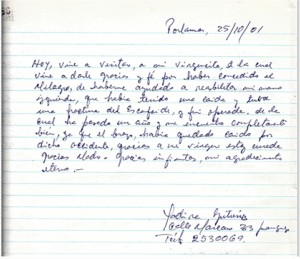 Porlamar, 25/10/01
Hoy, vine a visitar, a mi virgencita, a la cual
vine a darle gracias y fé por haber concedido el
Milagro, de haberme ayudado a reabilitar mi mano
izquierda, que había tenido una caida y tuve
una fractura del Escafoide, y fui operada, de la
cual ha pasado un año, y me encuentro completamente
bien, ya que el brazo, había quedado caido por
dicho accidente, gracias a mi virgen estoy
gracias infinitas, mi agradecimiento
eterno.-
Calle Marcano
Telf. 2530069.